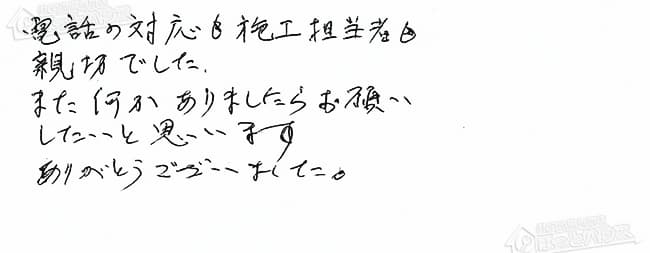 電話の対応も施工担当者も
親切でした.
また何かありましたらお願い
したいと思います
ありがとうございました。